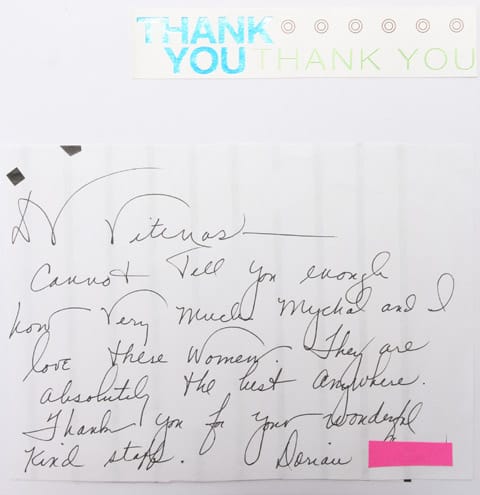 THANK
YOU THANK YOU
Dr Vitenas
Cannot Tell you enough
how Very Much Mychal and I
love these women. They are
absolutely the best anywhere.
Thank you for your wonderful
Kind staff. Dorian